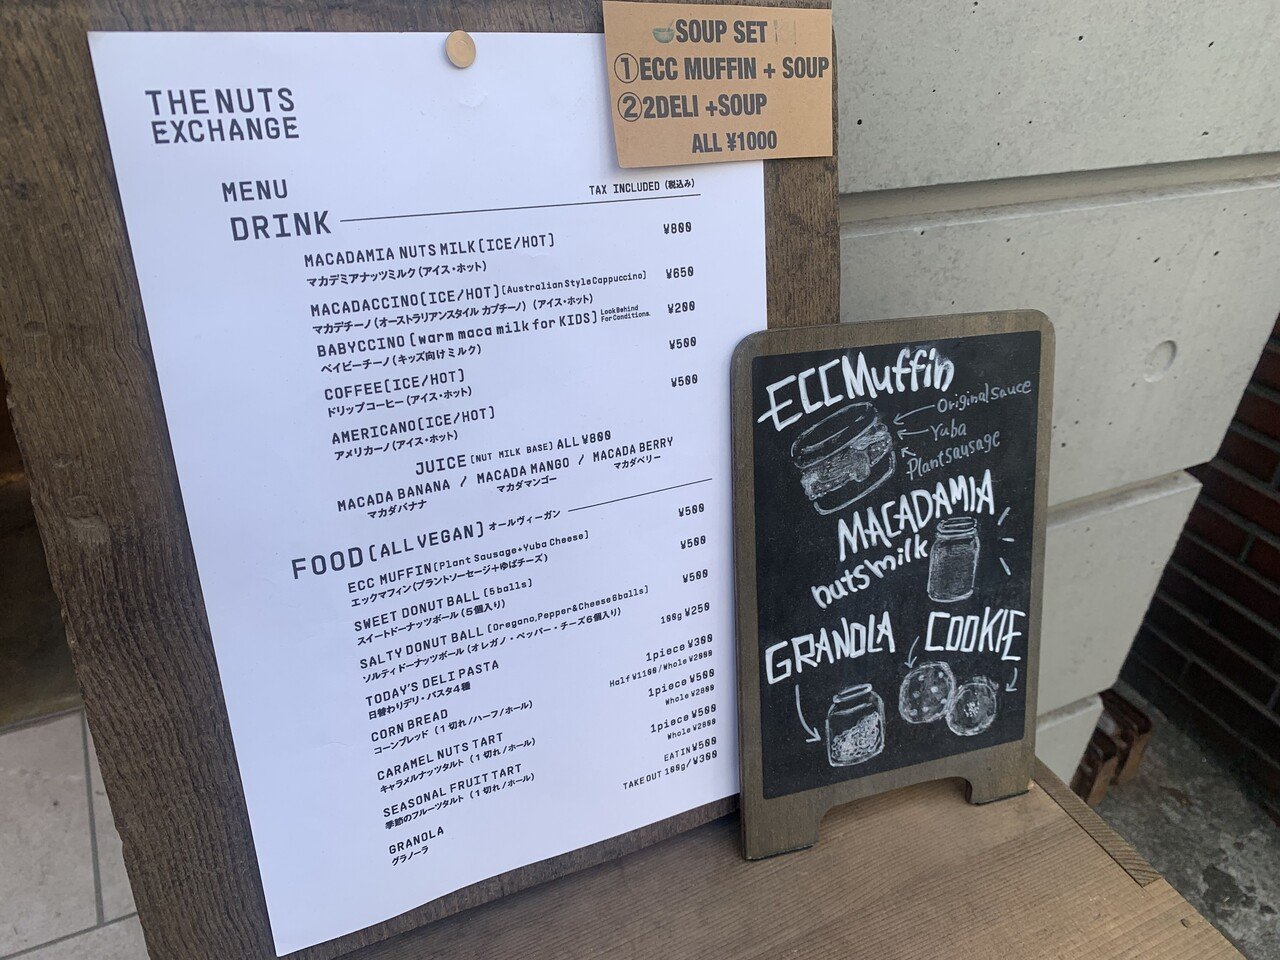 THE NUTS
EXCHANGE
MENU
TAX INCLUDED (税込み)
DRINK
MACADAMIA NUTS MILK [ICE/HOT] ¥800
マカデミアナッツミルク (アイス・ホット)
MACADACCINO [ICE/HOT] [Australian Style Cappuccino] ¥650
マカデチーノ (オーストラリアンスタイル カプチーノ) (アイス・ホット)
BABYCCINO [warm maca milk for KIDS] Look Behind For Conditions. ¥200
ベイビーチーノ (キッズ向けミルク)
COFFEE [ICE/HOT] ¥500
ドリップコーヒー (アイス・ホット)
AMERICANO [ICE/HOT] ¥500
アメリカーノ (アイス・ホット)
JUICE [NUT MILK BASE] ALL ¥800
MACADA BANANA / MACADA MANGO / MACADA BERRY
マカダバナナ マカダマンゴー マカダベリー
FOOD [ALL VEGAN] オールヴィーガン
ECC MUFFIN [Plant Sausage+Yuba Cheese] ¥500
エックマフィン (プラントソーセージ+ゆばチーズ)
SWEET DONUT BALL [5balls] ¥500
スイートドーナッツボール (5個入り)
SALTY DONUT BALL [Oregano,Pepper&Cheese 6balls] ¥500
ソルティドーナッツボール (オレガノ・ペッパー・チーズ6個入り)
TODAY'S DELI PASTA 100g ¥250
日替わりデリ・パスタ4種
CORN BREAD 1piece ¥300
コーンブレッド (1切れ/ハーフ/ホール) Half ¥1100/Whole ¥2000
CARAMEL NUTS TART 1piece ¥500
キャラメルナッツタルト (1切れ/ホール) Whole ¥2800
SEASONAL FRUIT TART 1piece ¥500
季節のフルーツタルト (1切れ/ホール) Whole ¥2800
GRANOLA EAT IN ¥500
グラノーラ TAKE OUT 100g/¥300
SOUP SET
①ECC MUFFIN + SOUP
②2DELI +SOUP
ALL ¥1000
ECC Muffin
Original sauce
Yuba
Plant sausage
MACADAMIA
nuts milk
GRANOLA
COOKIE